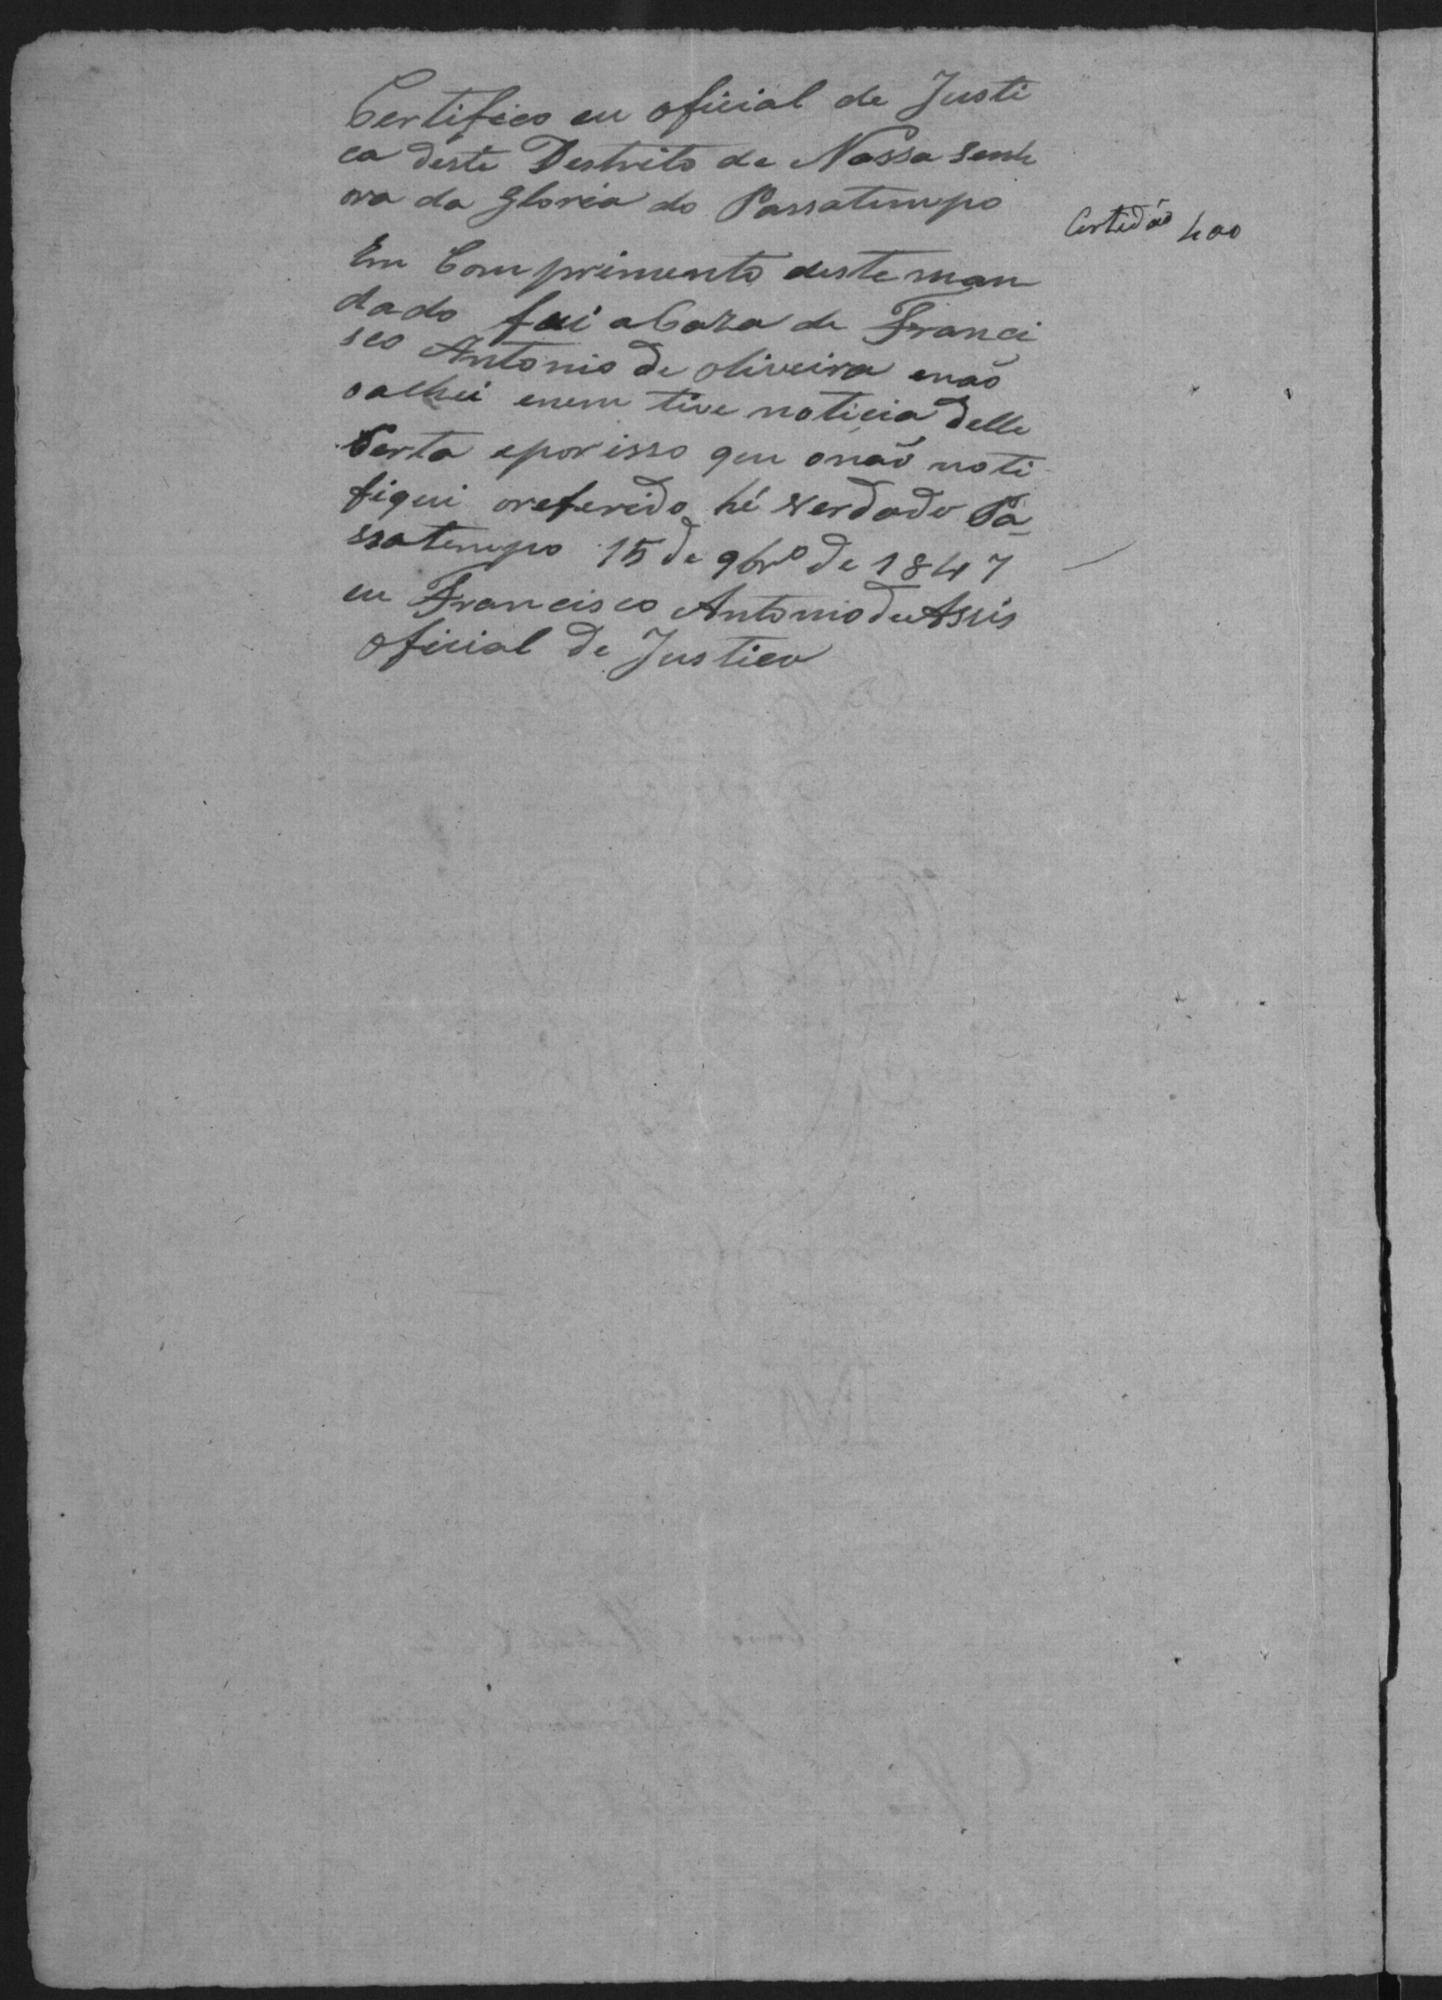 Certifico eu oficial de Justi
ca deste Destrito de Nossa Senh
ora da Gloria do Passatempo
Certidão 400
Em Comprimento deste man
dado fui a Caza de Franci
sco Antonio de oliveira enão
oalhei enem tive noticia delle
Certa eporisso que onão noti
fiqui oreferido hé verdade Pa
ssatempo 15 de 9brº de 1847
eu Francisco Antonio de Assis
oficial de Justica